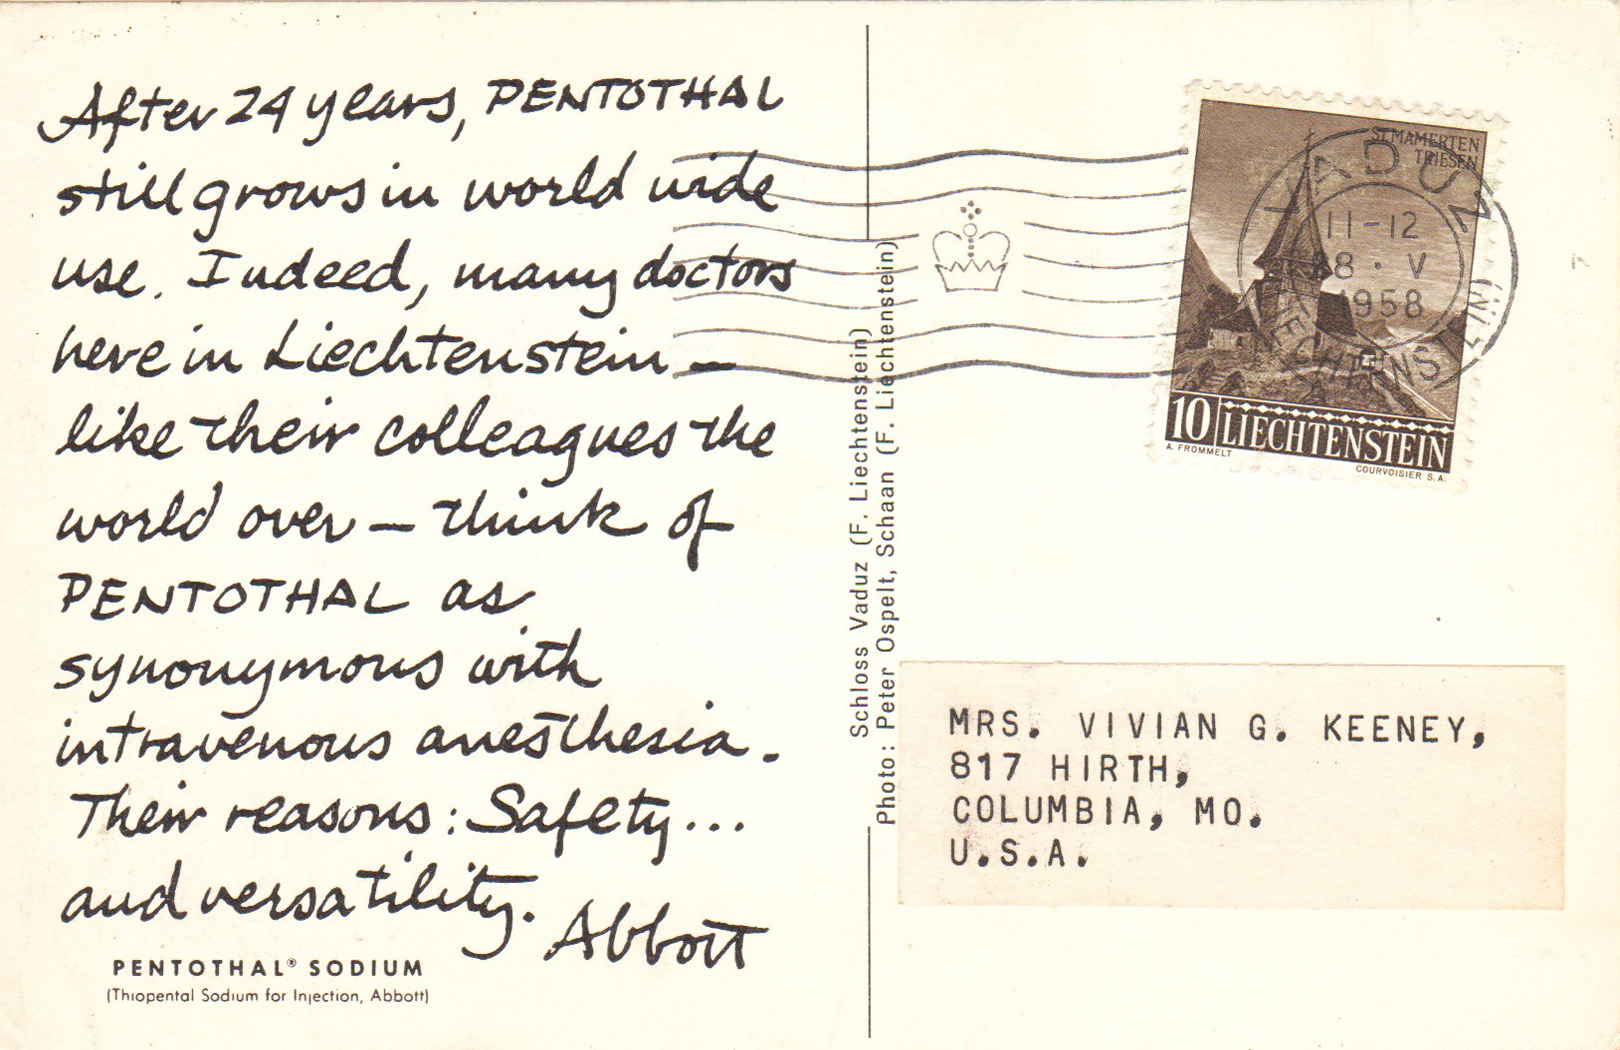 After 24 years, PENTOTHAL
still grows in world wide
use. Indeed, many doctors
here in Liechtenstein —
like their colleagues the
world over — think of
PENTOTHAL as
synonymous with
intravenous anesthesia.
Their reasons: Safety...
and versatility.
Abbott
PENTOTHAL® SODIUM
(Thiopental Sodium for Injection, Abbott)
Schloss Vaduz (F. Liechtenstein)
Photo: Peter Ospelt, Schaan (F. Liechtenstein)
ST. MAMERTEN
TRIESEN
10 LIECHTENSTEIN
A. FROMMELT
COURVOISIER S.A.
VADUZ
11-12
8 · V
1958
LIECHTENSTEIN
MRS. VIVIAN G. KEENEY,
817 HIRTH,
COLUMBIA, MO.
U.S.A.